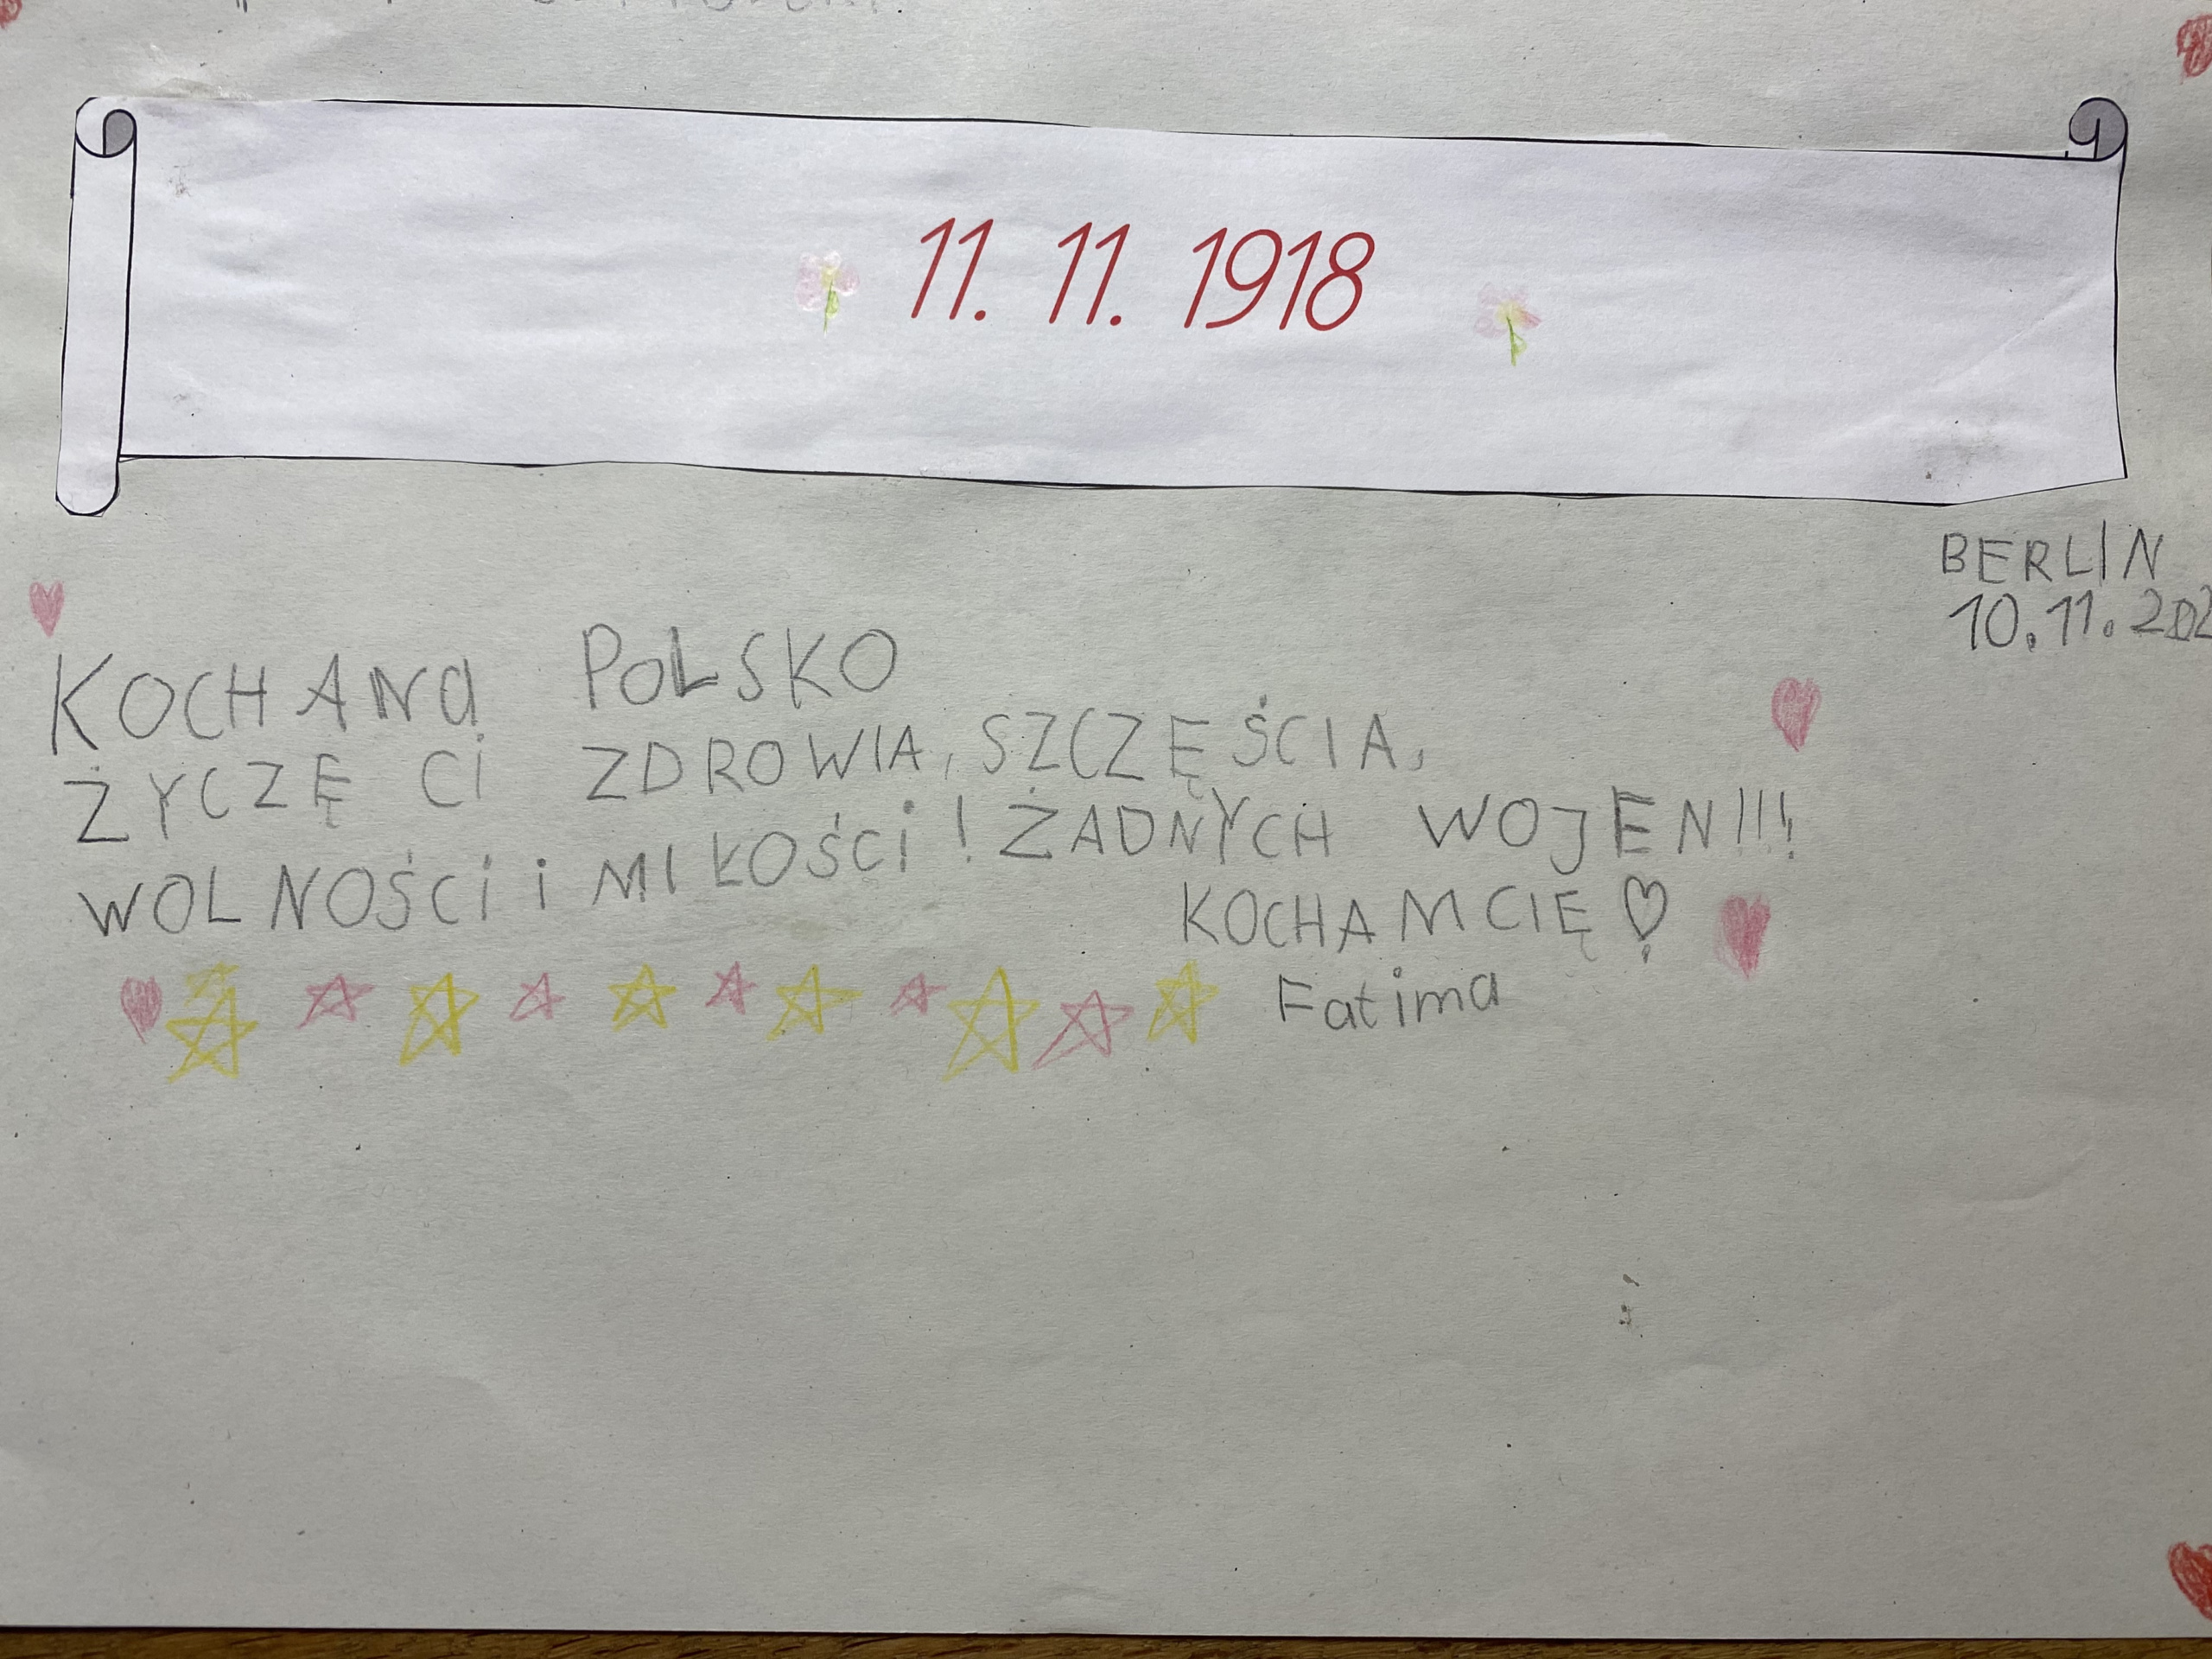 11. 11. 1918
BERLIN
10.11.202
KOCHANa POLSKO
ŻYCZĘ Ci ZDROWIA, SZCZĘŚCIA,
WOLNOŚCi i MIŁOŚCi! ŻADNYCH WOJEN!!!
KOCHAM CIĘ
Fatima